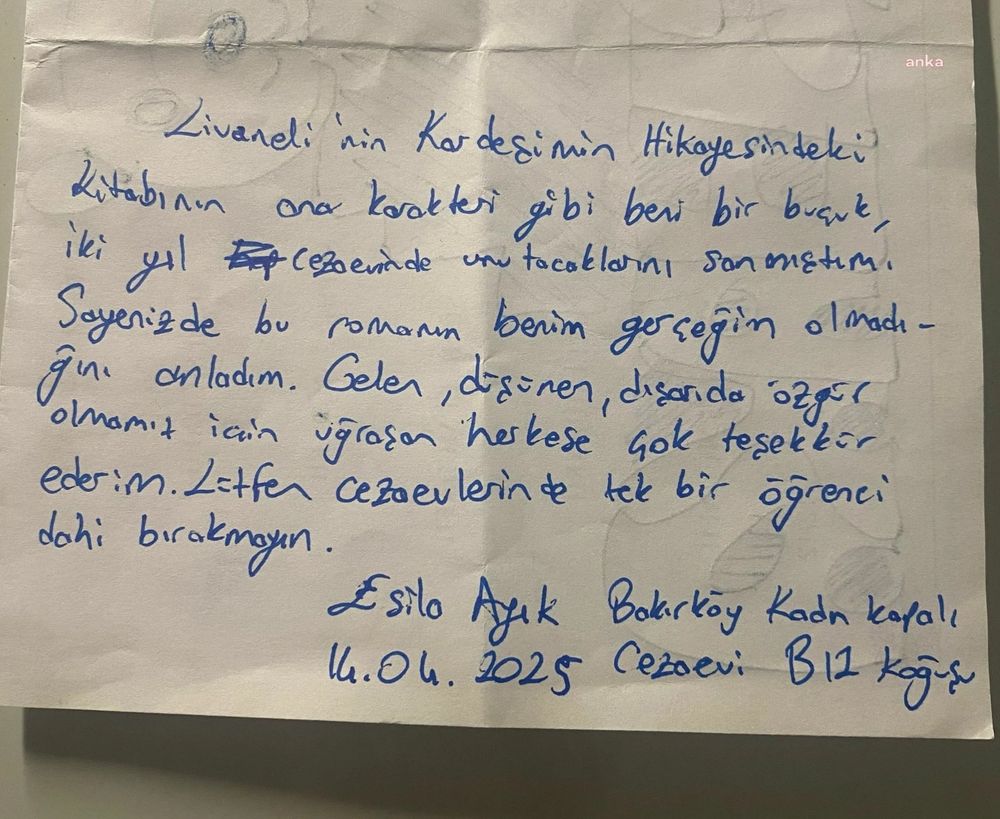 anka
Livaneli'nin Kardeşimin Hikayesindeki
kitabının ana karakteri gibi beni bir buçuk,
iki yıl cezaevinde unutacaklarını sanmıştım.
Sayenizde bu romanın benim gerçeğim olmadı-
ğını anladım. Gelen, düşünen, dışarıda özgür
olmamız için uğraşan herkese çok teşekkür
ederim. Lütfen cezaevlerinde tek bir öğrenci
dahi bırakmayın.
Esila Ayık Bakırköy Kadın kapalı
14.04.2025 Cezaevi B12 Koğuşu